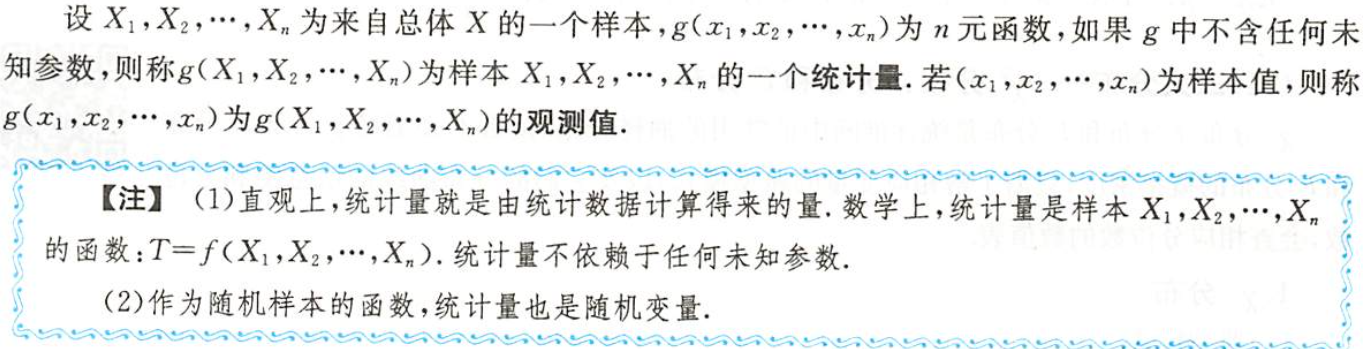 设 X₁,X₂,…,Xₙ 为来自总体 X 的一个样本,g(x₁,x₂,…,xₙ)为 n 元函数,如果 g 中不含任何未
知参数,则称g(X₁,X₂,…,Xₙ)为样本 X₁,X₂,…,Xₙ 的一个统计量.若(x₁,x₂,…,xₙ)为样本值,则称
g(x₁,x₂,…,xₙ)为g(X₁,X₂,…,Xₙ)的观测值.
【注】 (1)直观上,统计量就是由统计数据计算得来的量.数学上,统计量是样本 X₁,X₂,…,Xₙ
的函数:T=f(X₁,X₂,…,Xₙ).统计量不依赖于任何未知参数.
(2)作为随机样本的函数,统计量也是随机变量.